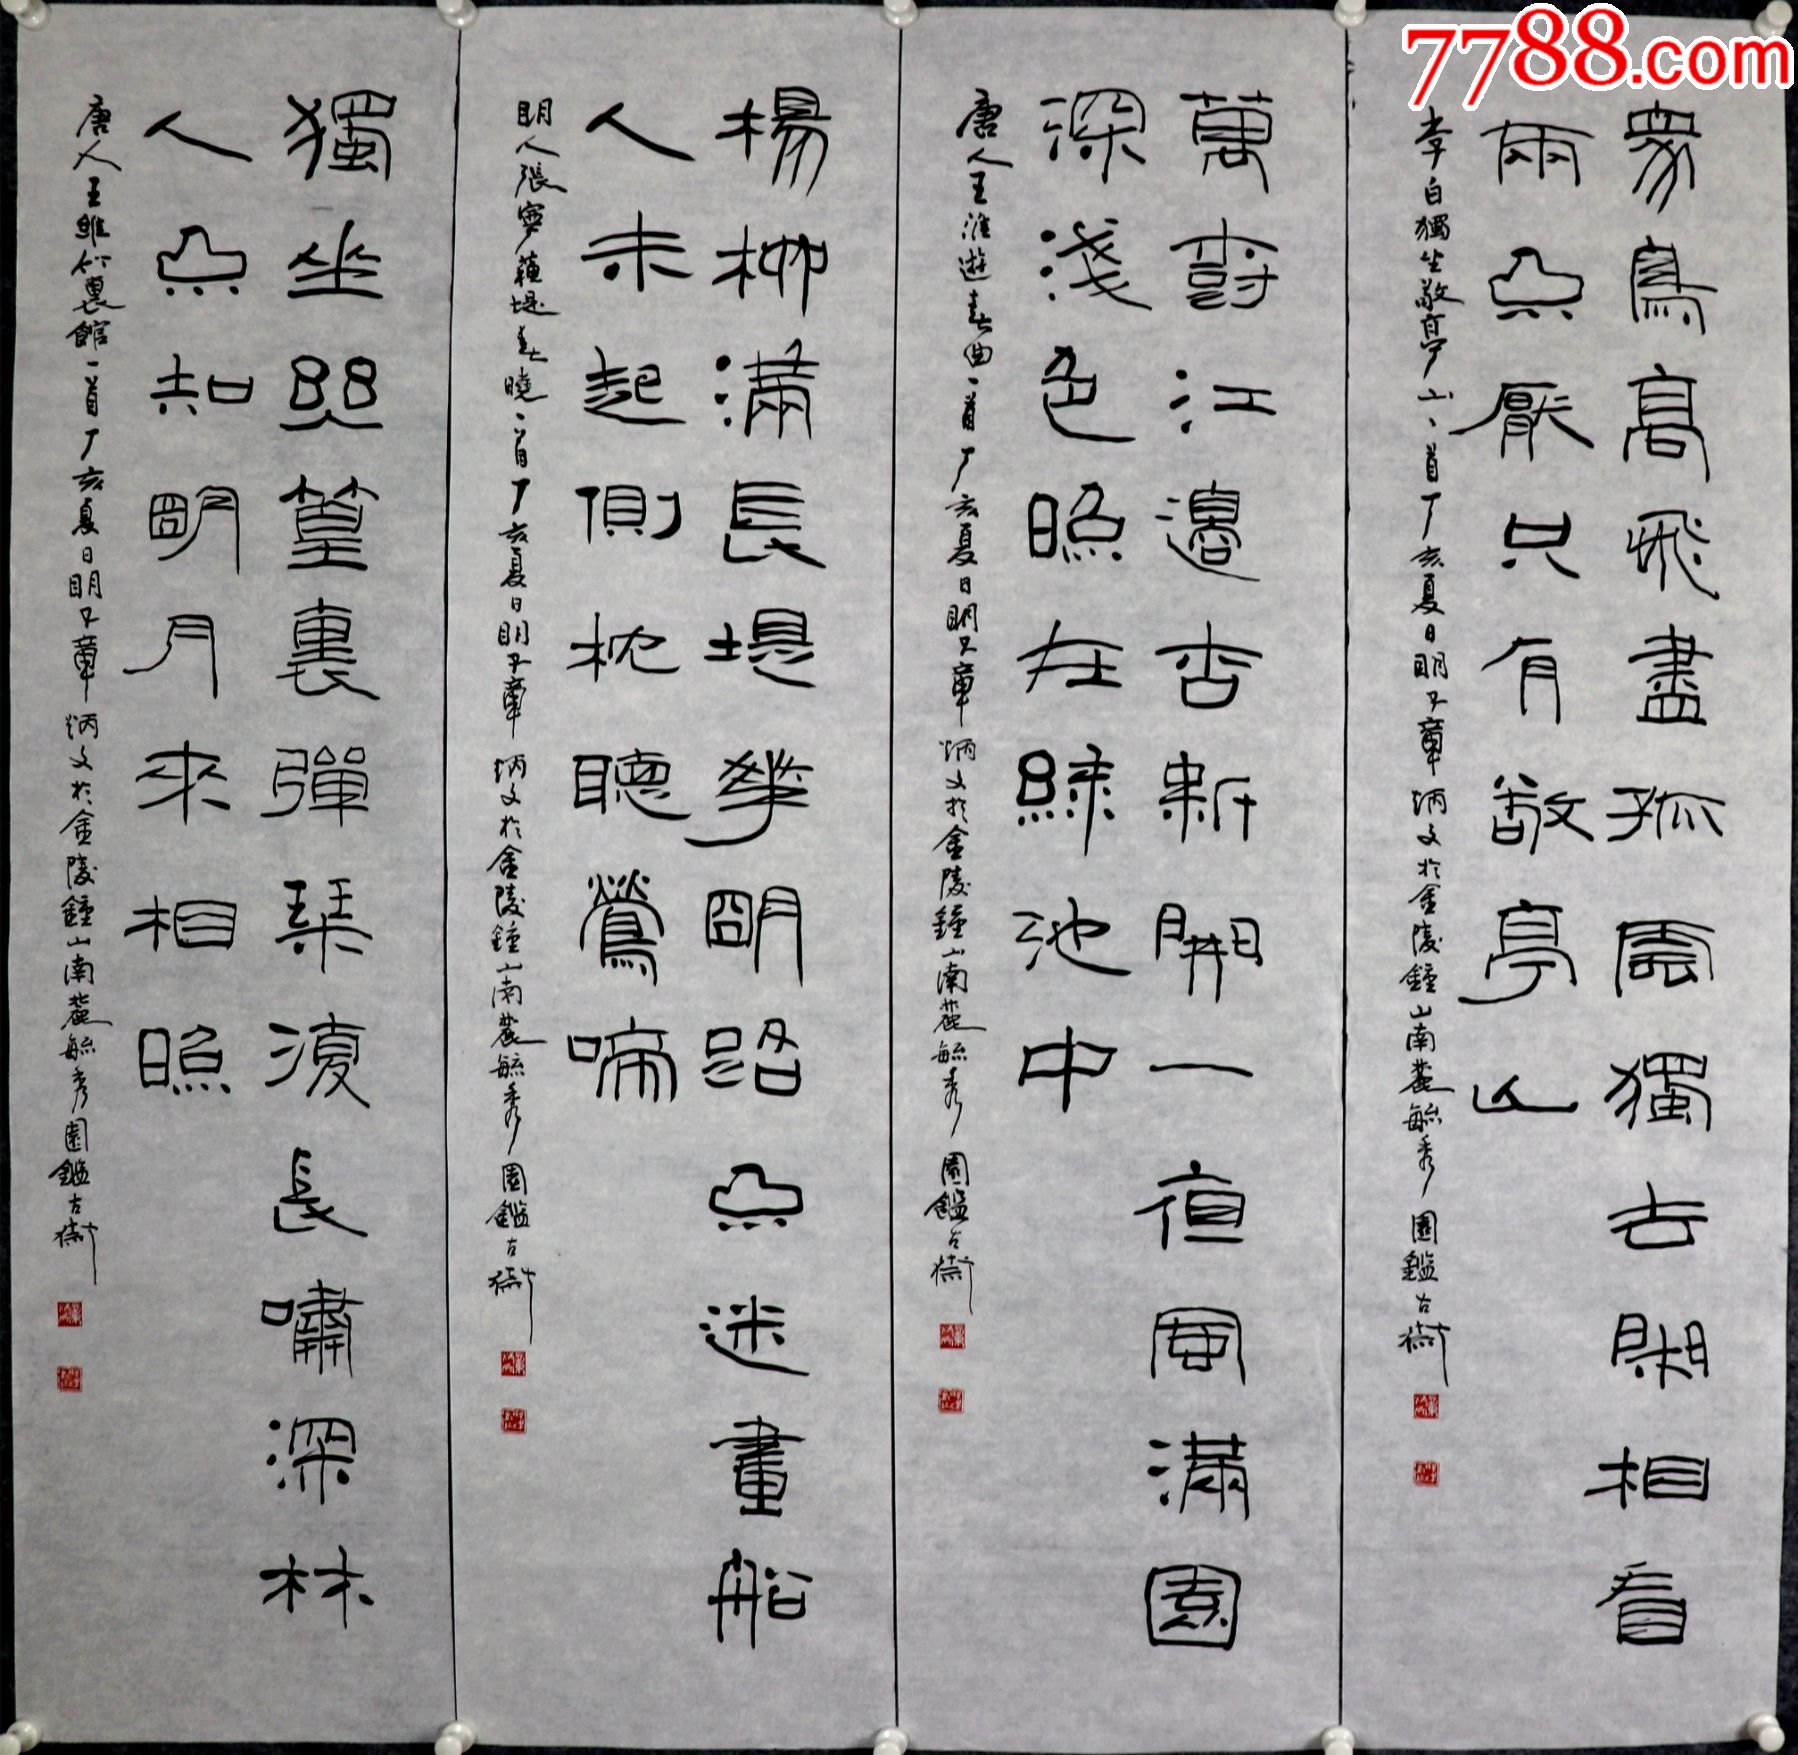 7788.com
衆鳥高飛盡孤雲獨去閑相看
兩不厭只有敬亭山
李白獨坐敬亭山一首丁亥夏日明子章炳文於金陵鍾山南麓毓秀園鑑古齋
萬尌江邊杏新開一夜風滿園
深淺色照在綠池中
唐人王涯遊春曲一首丁亥夏日明子章炳文於金陵鍾山南麓毓秀園鑑古齋
楊柳滿長堤華明路不迷畫船
人未起側枕聽鶯啼
明人張寧蘇堤春曉一首丁亥夏日明子章炳文於金陵鍾山南麓毓秀園鑑古齋
獨坐幽篁裏彈琹復長嘯深林
人不知明月來相照
唐人王維竹裏館一首丁亥夏日明子章炳文於金陵鍾山南麓毓秀園鑑古齋